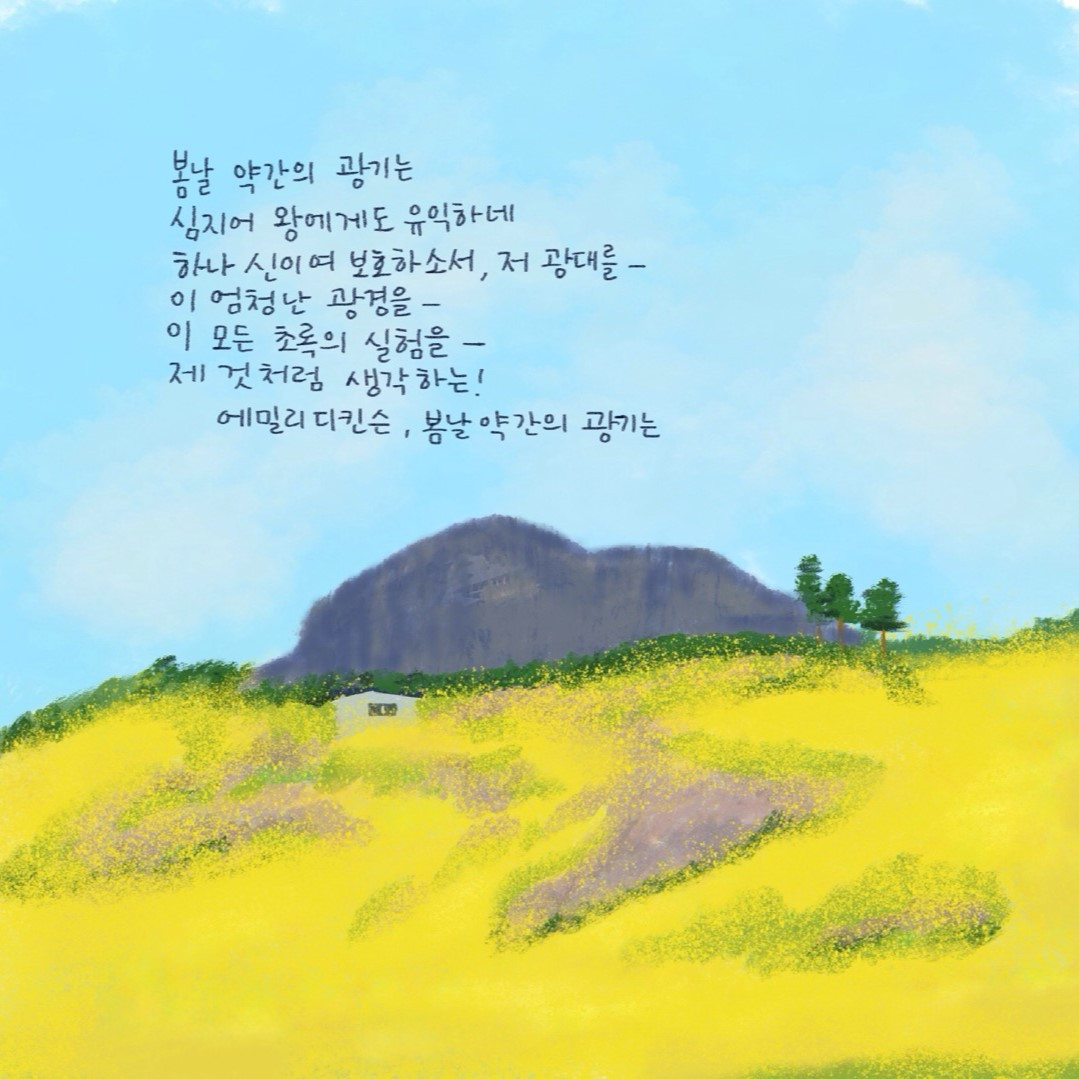 봄날 약간의 광기는
심지어 왕에게도 유익하네
하나 신이여 보호하소서, 저 광대를 –
이 엄청난 광경을 –
이 모든 초록의 실험을 –
제 것처럼 생각하는!
에밀리 디킨슨, 봄날 약간의 광기는